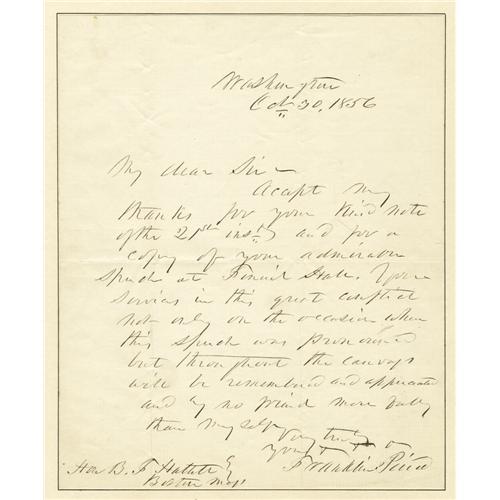 Washington
Oct 30, 1856
My dear Sir
Accept my
thanks for your kind note
of the 21st inst and for a
copy of your admirable
speech at Faneuil Hall. Your
services in this great conflict
not only on the occasion when
this speech was pronounced
but throughout the canvass
will be remembered and appreciated
and by no friend more fully
than myself
Very truly
your
Franklin Pierce
Hon B. F Hallett
Boston Mass